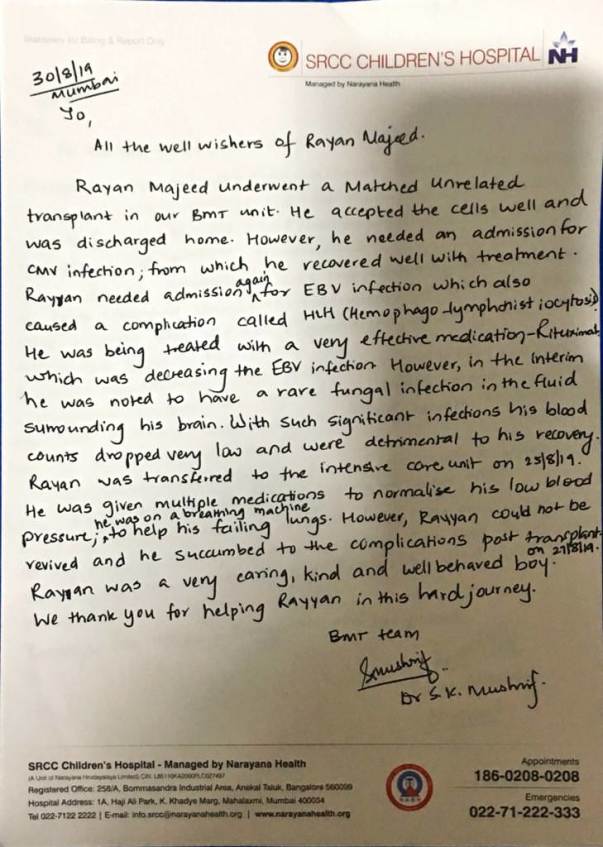 Stationery for Billing & Report Only
SRCC CHILDREN'S HOSPITAL NH
Managed by Narayana Health
30/8/19
Mumbai
To,
All the well wishers of Rayan Majeed.
Rayan Majeed underwent a Matched Unrelated
transplant in our BMT unit. He accepted the cells well and
was discharged home. However, he needed an admission for
CMV infection; from which he recovered well with treatment.
Rayyan needed admission again for EBV infection which also
caused a complication called HLH (Hemophago-lymphohist iocytosis)
He was being treated with a very effective medication - Rituximab
which was decreasing the EBV infection However, in the interim
he was noted to have a rare fungal infection in the fluid
surrounding his brain. With such significant infections his blood
counts dropped very low and were detrimental to his recovery.
Rayan was transferred to the intensive care unit on 25/8/19.
He was given multiple medications to normalise his low blood
pressure; he was on a breathing machine to help his failing lungs. However, Rayyan could not be
revived and he succumbed to the complications post transplant on 27/8/19.
Rayyan was a very caring, kind and well behaved boy.
We thank you for helping Rayyan in this hard journey.
BMT team
Dr S.K. Mushrif.
SRCC Children's Hospital - Managed by Narayana Health
Registered Office: 258/A, Bommasandra Industrial Area, Anekal Taluk, Bangalore 560099
Hospital Address: 1A, Haji Ali Park, K. Khadye Marg, Mahalaxmi, Mumbai 400034
Tel 022-7122 2222 | E-mail: info.srcc@narayanahealth.org | www.narayanahealth.org
Appointments
186-0208-0208
Emergencies
022-71-222-333